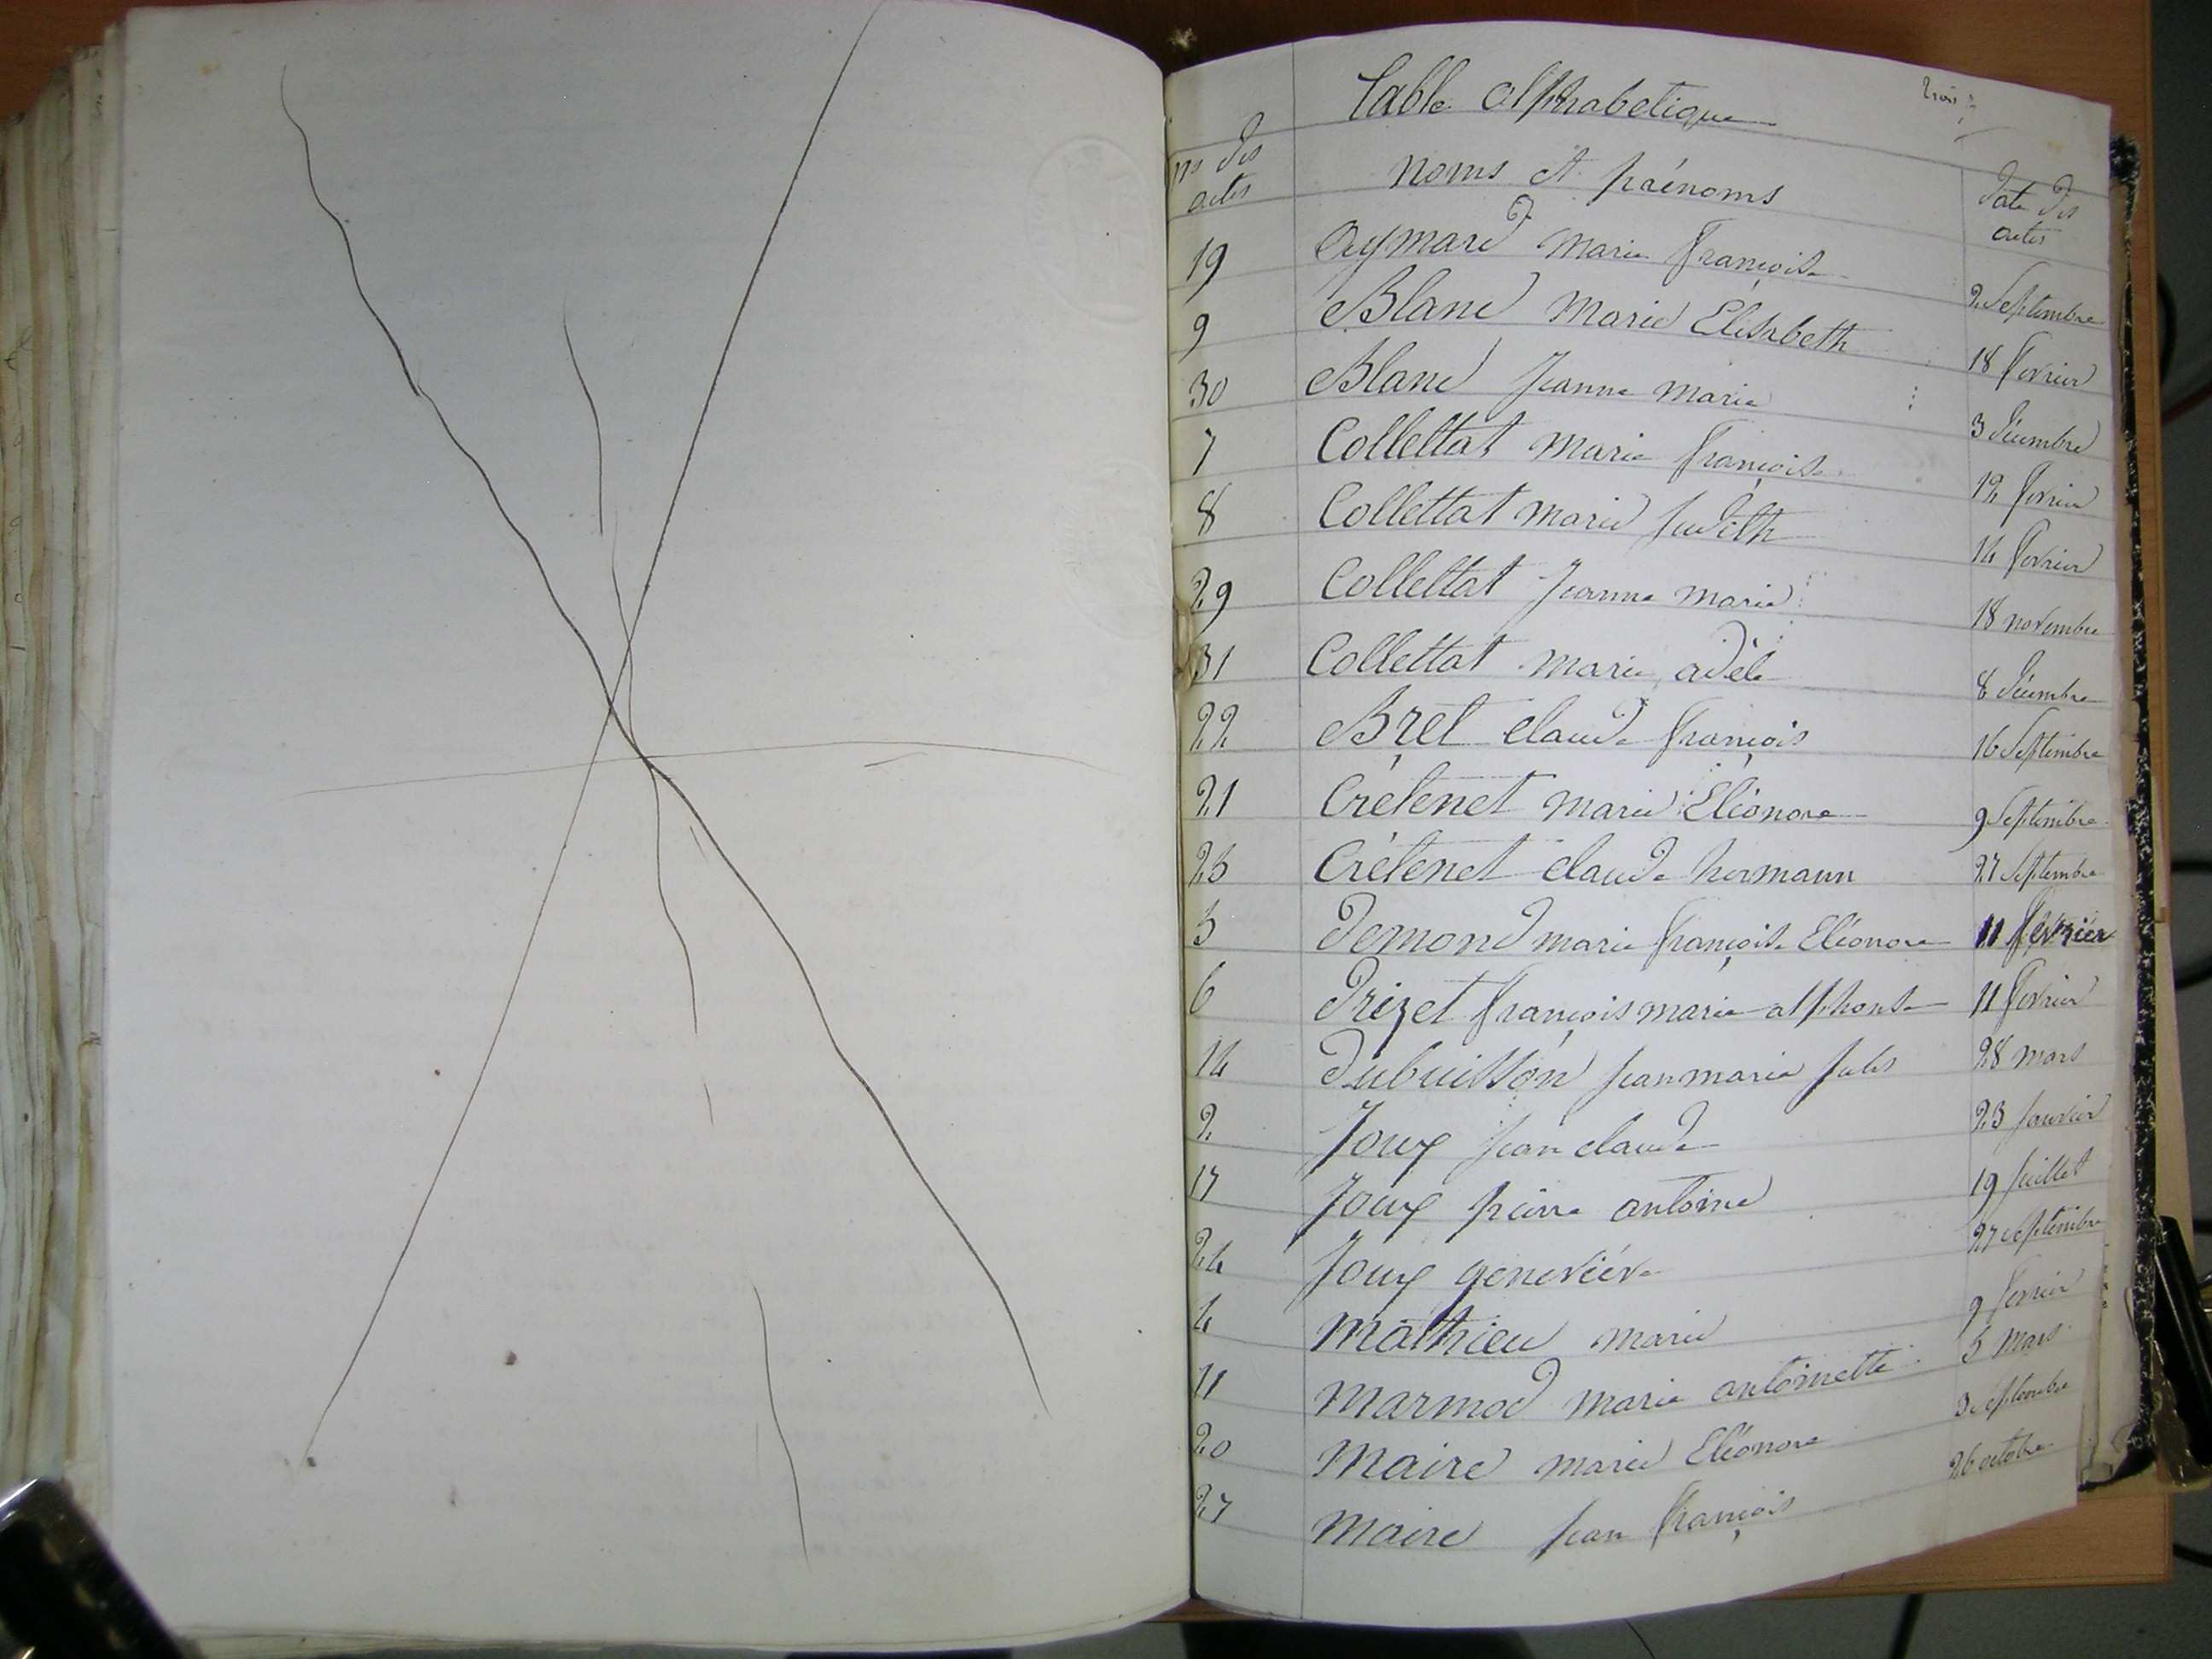 Table alphabetique
nos des actes noms et prénoms date des actes
19 Aymard marie françoise 2 Septembre
9 Blanc Marie Elisabeth 18 fevrier
30 Blanc Jeanne marie 3 décembre
7 Collettat marie françoise 12 fevrier
8 Collettat marie judith 14 fevrier
29 Collettat Jeanne marie 18 novembre
31 Collettat marie adèle 8 décembre
22 Bret claude françois 16 Septembre
21 Crétenet marie Eléonore 9 Septembre
23 Crétenet claude hermann 27 Septembre
5 Demond marie françoise Eléonore 11 février
6 Drezet françois marie alphonse 11 fevrier
14 Dubuisson jean marie jules 28 mars
2 Jouy jean claude 23 janvier
17 Jouy pierre antoine 19 juillet
24 Jouy geneviève 27 septembre
4 Mathieu marie 9 fevrier
11 Marmod marie antoinette 5 mars
20 Maire marie Eléonore 3 septembre
27 Maire jean françois 26 octobre